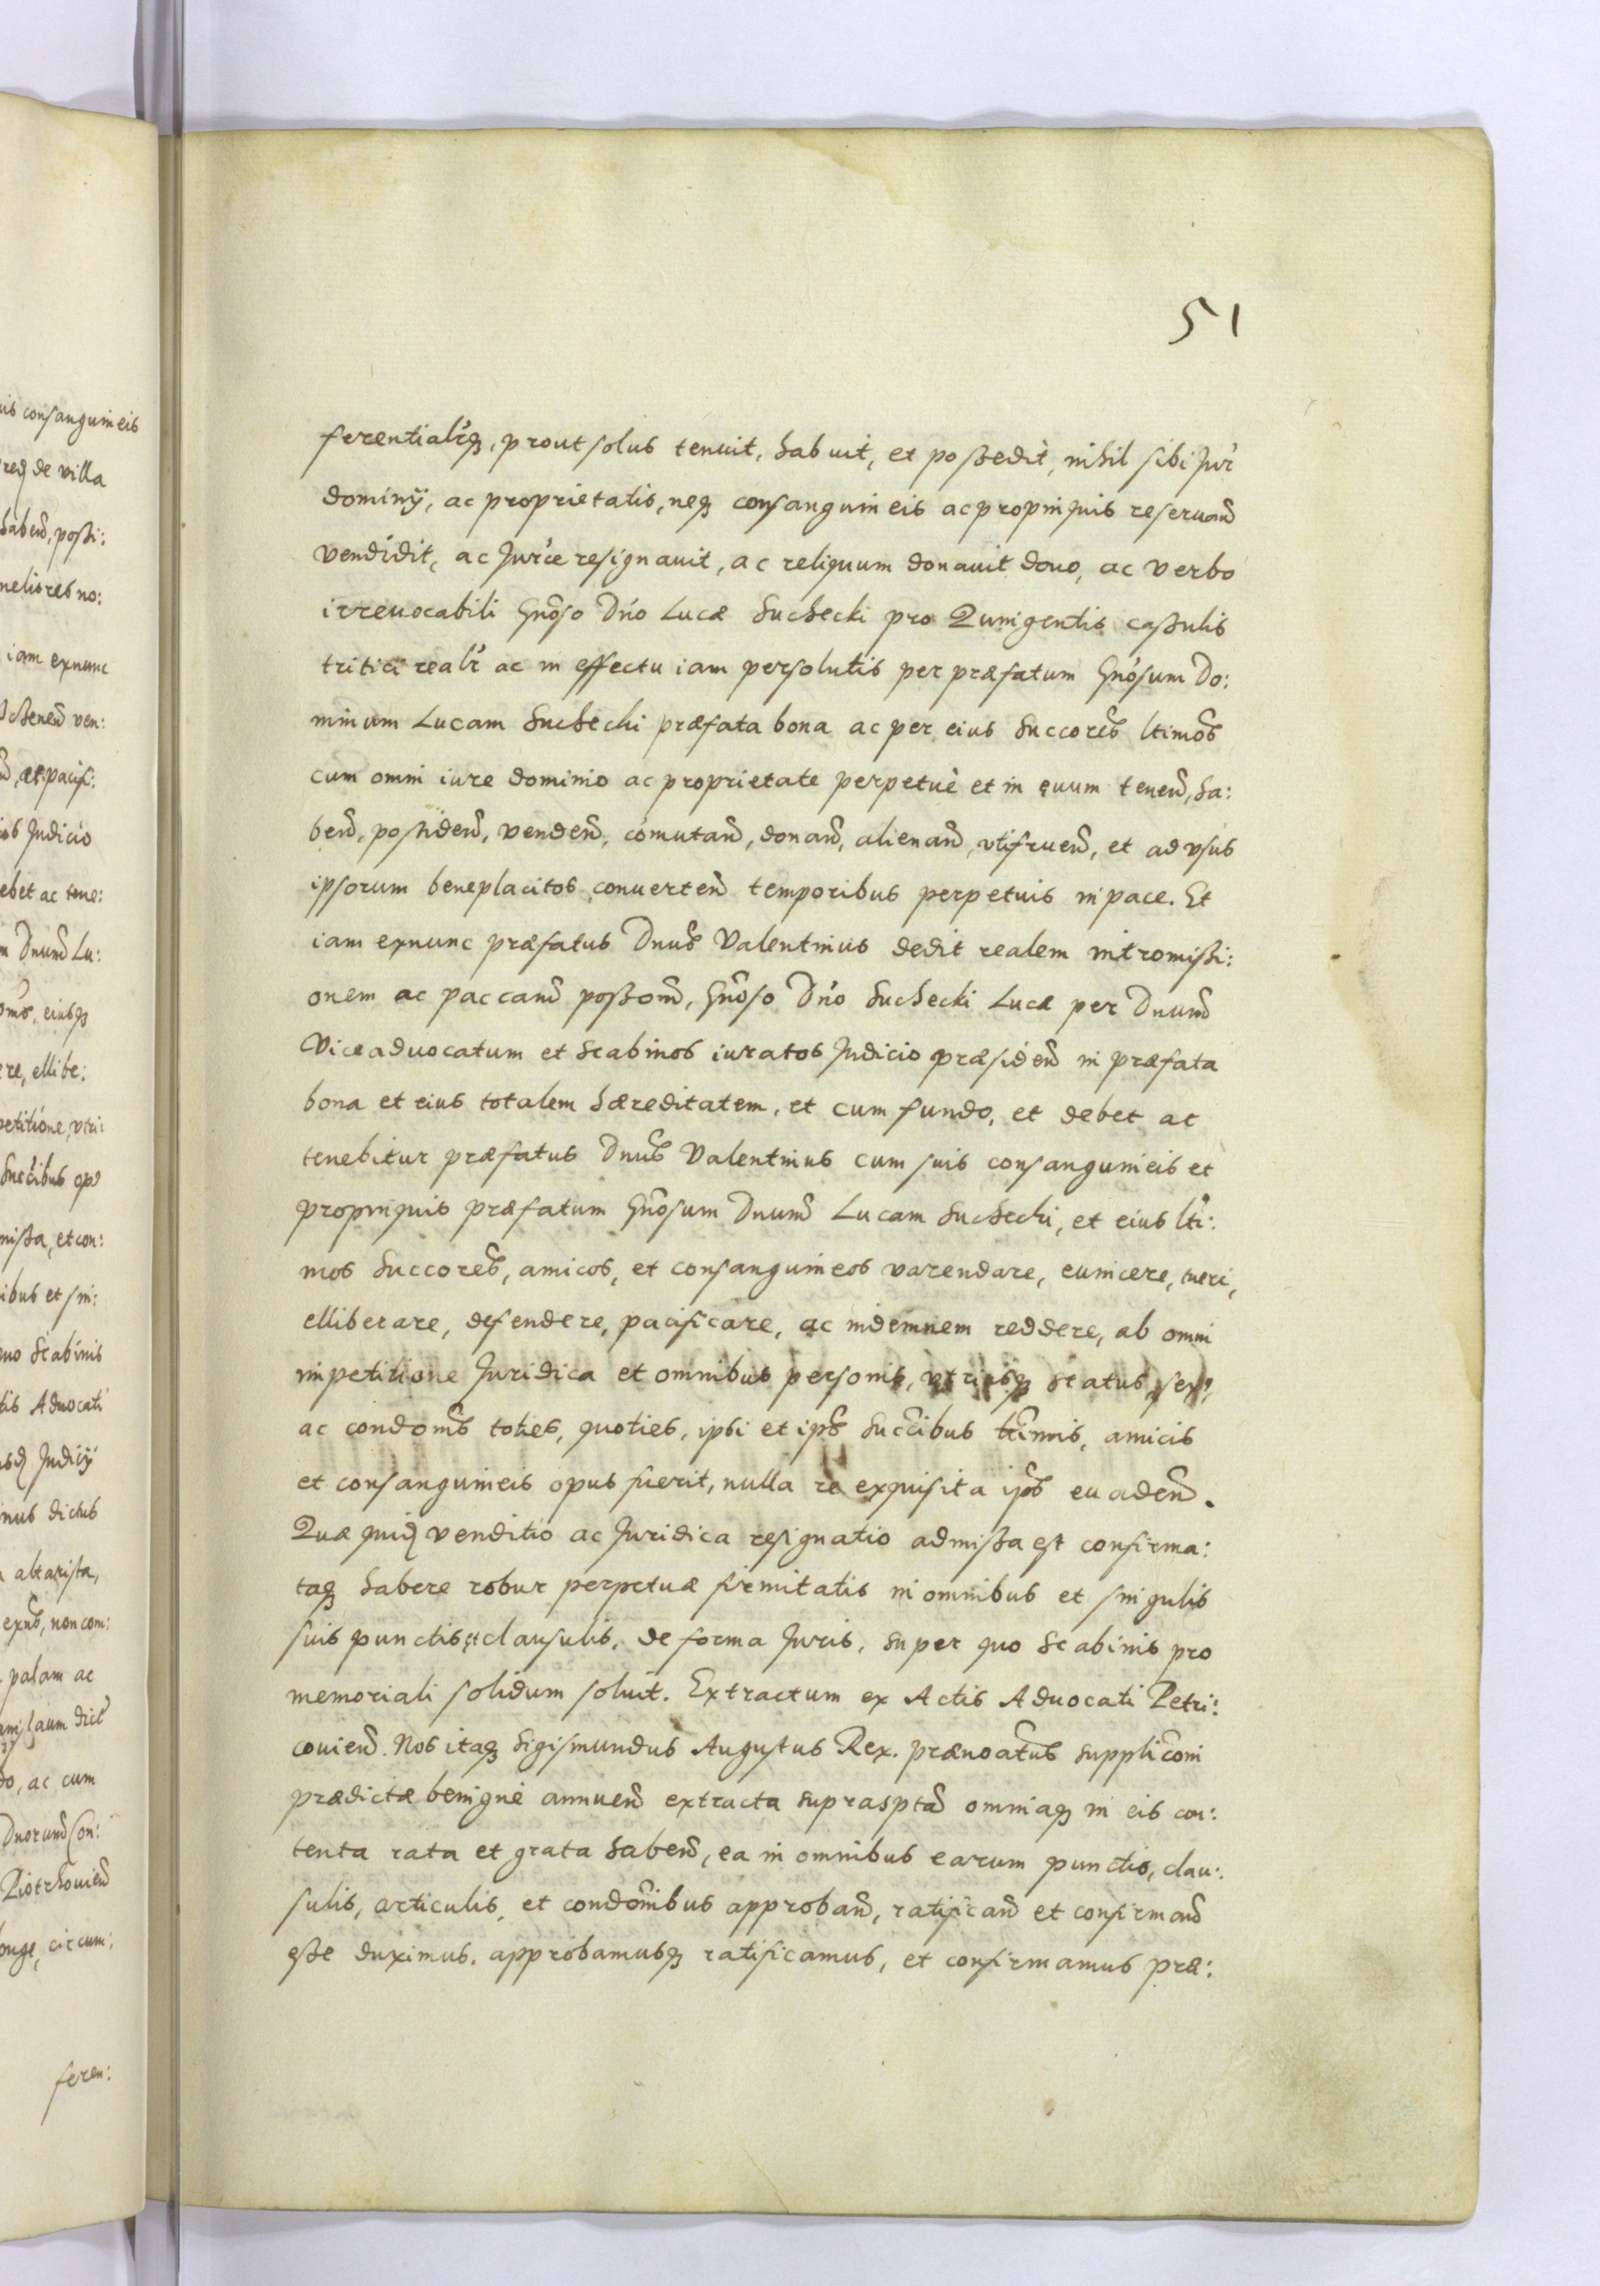 51
ferentialr̃q3, prout solus tenuit, habuit, et possedit, nihil sibi Jur̃
dominij, ac proprietatis, neq3 consanguineis ac propinquis reseruañd
vendidit, ac Jur̃ce resignauit, ac reliquum donauit dono, ac verbo
irreuocabili Gñoso Dño Lucæ Suchecki pro Quingentis cassulis
tritici realr̃ ac in effectu iam persolutis per præfatum Gñosum Do:
minum Lucam Suchecki præfata bona ac per eius Succores̃ ltimos̃
cum omni iure dominio ac proprietate perpetuè et in ęuum teneñd, ha:
beñd, possideñd, vendeñd, com̃utañd, donañd, alienañd, vtifrueñd, et ad vsus
ipsorum beneplacitos conuerteñd temporibus perpetuis in pace. Et
iam exnunc præfatus Dnus̃ Valentinus dedit realem intromissi:
onem ac paccam̃ possom̃, Gñoso Dño Suchecki Lucæ per Dnum̃
Viceaduocatum et Scabinos iuratos Judicio præsideñd in præfata
bona et eius totalem hæreditatem, et cum fundo, et debet ac
tenebitur præfatus Dnus̃ Valentinus cum suis consanguineis et
propinquis præfatum Gñosum Dnum̃ Lucam Suchecki, et eius ltĩ:
mos Succores̃, amicos, et consanguineos varendare, euincere, tueri,
elliberare, defendere, pacificare, ac indemnem reddere, ab omni
impetitione Juridica et omnibus personis, vtriusq3 status, sex9,
ac condoms̃ toties, quoties, ipsi et ips̃ Succ̃ibus ltĩmis, amicis
et consanguineis opus fuerit, nulla re exquisita ips̃ euadeñd.
Quæ quid̃ venditio ac Juridica resignatio admissa est confirma:
taq3 habere robur perpetuæ firmitatis in omnibus et singulis
suis punctis et clausulis, de forma Juris, super quo Scabinis pro
memoriali solidum soluit. Extractum ex Actis Aduocati Petri:
couieñd. Nos itaq3 Sigismundus Augustus Rex. prænoatus̃ supplicõni
prædictæ benignè annueñd extracta suprasptã omniaq3 in eis con:
tenta rata et grata habeñd, ea in omnibus earum punctis, clau:
sulis, articulis, et condõnibus approbañd, ratificañd et confirmañd
esse duximus. approbamusq3 ratificamus, et confirmamus præ: